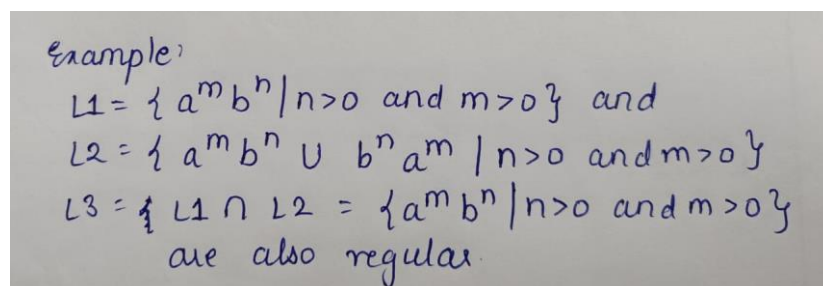 Example:
L1 = { a^m b^n | n>0 and m>0} and
L2 = { a^m b^n U b^n a^m | n>0 and m>0}
L3 = { L1 ∩ L2 = {a^m b^n | n>0 and m>0}
are also regular.